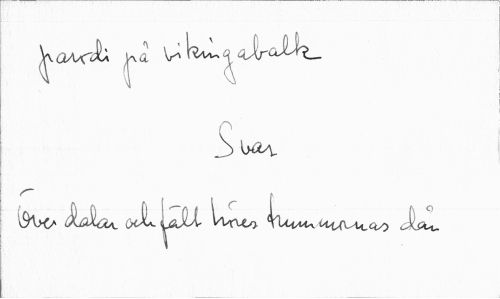 parodi på vikingabalk
Svar
Över dalar och fält höres trummornas dån